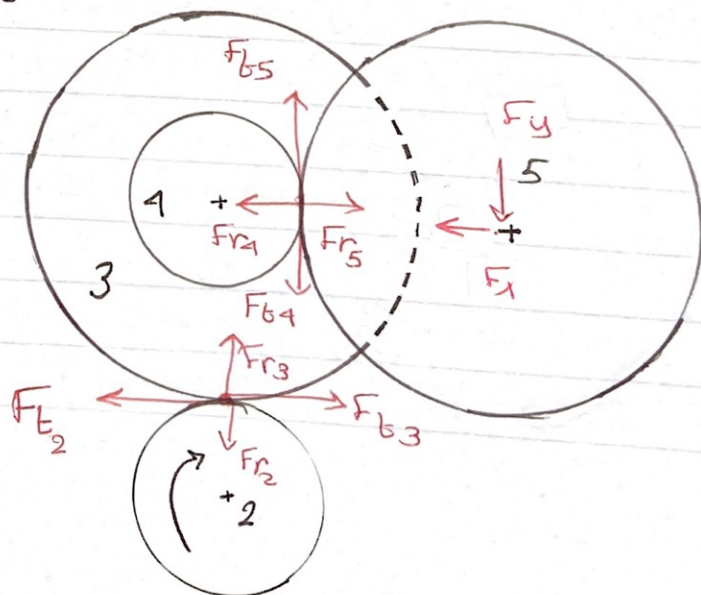 Ft5
Fy
5
4
Fr4
Fr5
Fx
3
Ft4
Fr3
Ft2
Ft3
Fr2
2